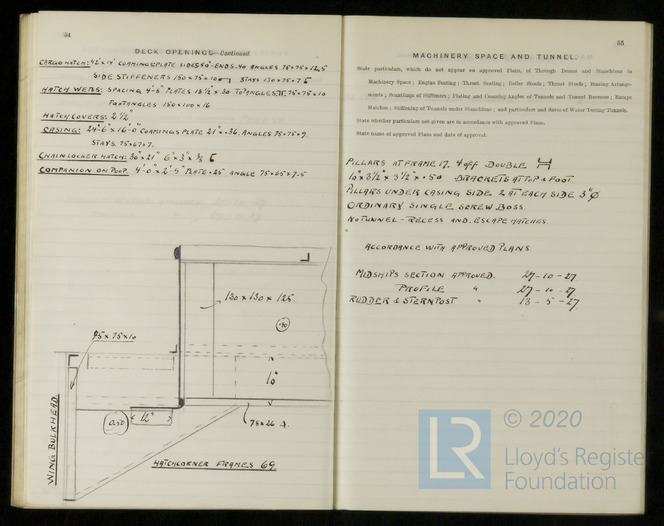 54
DECK OPENINGS—Continued
CARGO HATCH: 42'×14' COAMINGS PLATE SIDES .50" ENDS .40 ANGLES 75×75×12.5
SIDE STIFFENERS 150×75×10 STAYS 130×75×7.5
HATCH WEBS: SPACING 4'-8" PLATES 18½×.30 TOP ANGLES 75×75×10
FOOT ANGLES 150×100×16
HATCH COVERS: 2½"
CASING: 24'-6" × 16'-0" COAMINGS PLATE 21"×.36. ANGLES 75×75×9.
STAYS 75×67×7.
CHAIN LOCKER HATCH: 30"×21" 6"×3"×⅜
COMPANION ON POOP 4'-0"×2'-9" PLATE .25" ANGLE 75×65×7.5
130 × 130 × 12.5
.30
75×75×10
10"
0.50
12"
75×26
WING BULKHEAD
HATCHCORNER FRAMES 69
55
MACHINERY SPACE AND TUNNEL.
State particulars, which do not appear on approved Plans, of Through Beams and Stanchions in
Machinery Space; Engine Seating; Thrust Seating; Boiler Stools; Thrust Stools; Bearing Arrange-
ments; Scantlings of Stiffeners; Plating and Connecting Angles of Tunnels and Tunnel Recesses; Escape
Hatches; Stiffening of Tunnels under Stanchions; and particulars and dates of Water Testing Tunnels.
State whether particulars not given are in accordance with approved Plans.
State name of approved Plans and date of approval.
PILLARS AT FRAME 17. 4 OFF DOUBLE
10"×3½"×3½"×.50 BRACKETS AT TOP & FOOT.
PILLARS UNDER CASING SIDE 2 AT EACH SIDE 3"Ø
ORDINARY SINGLE SCREW BOSS.
NO TUNNEL - RECESS AND ESCAPE HATCHES.
ACCORDANCE WITH APPROVED PLANS.
MIDSHIPS SECTION APPROVED. 27-10-27.
PROFILE " 27-10-27.
RUDDER & STERNPOST " 13-5-27.
LR © 2020
Lloyd's Register
Foundation